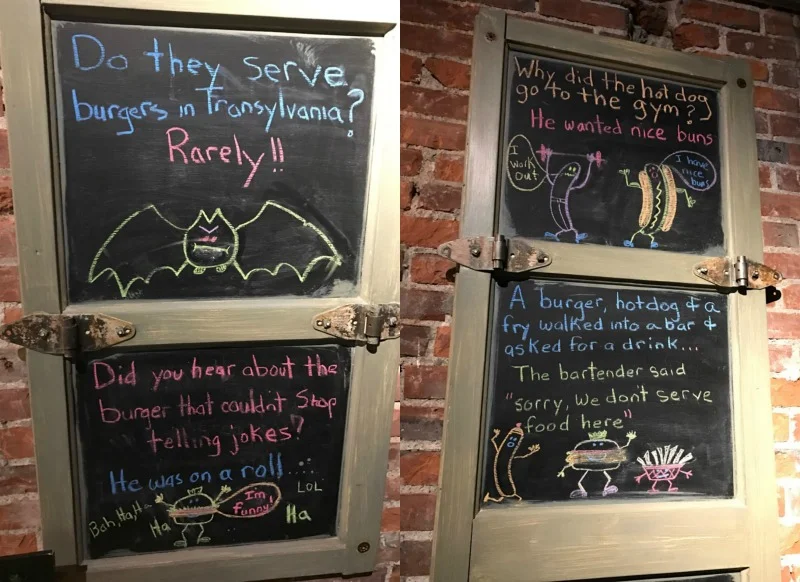 Do they serve
burgers in Transylvania?
Rarely!!
Did you hear about the
burger that couldn't stop
telling jokes?
He was on a roll...
LOL
Bah, Ha, Ha
Ha
I'm
funny!
Ha
Why did the hot dog
go to the gym?
He wanted nice buns
I
Work
Out
I have
nice
buns
A burger, hotdog & a
fry walked into a bar &
asked for a drink...
The bartender said
"sorry, we don't serve
food here"